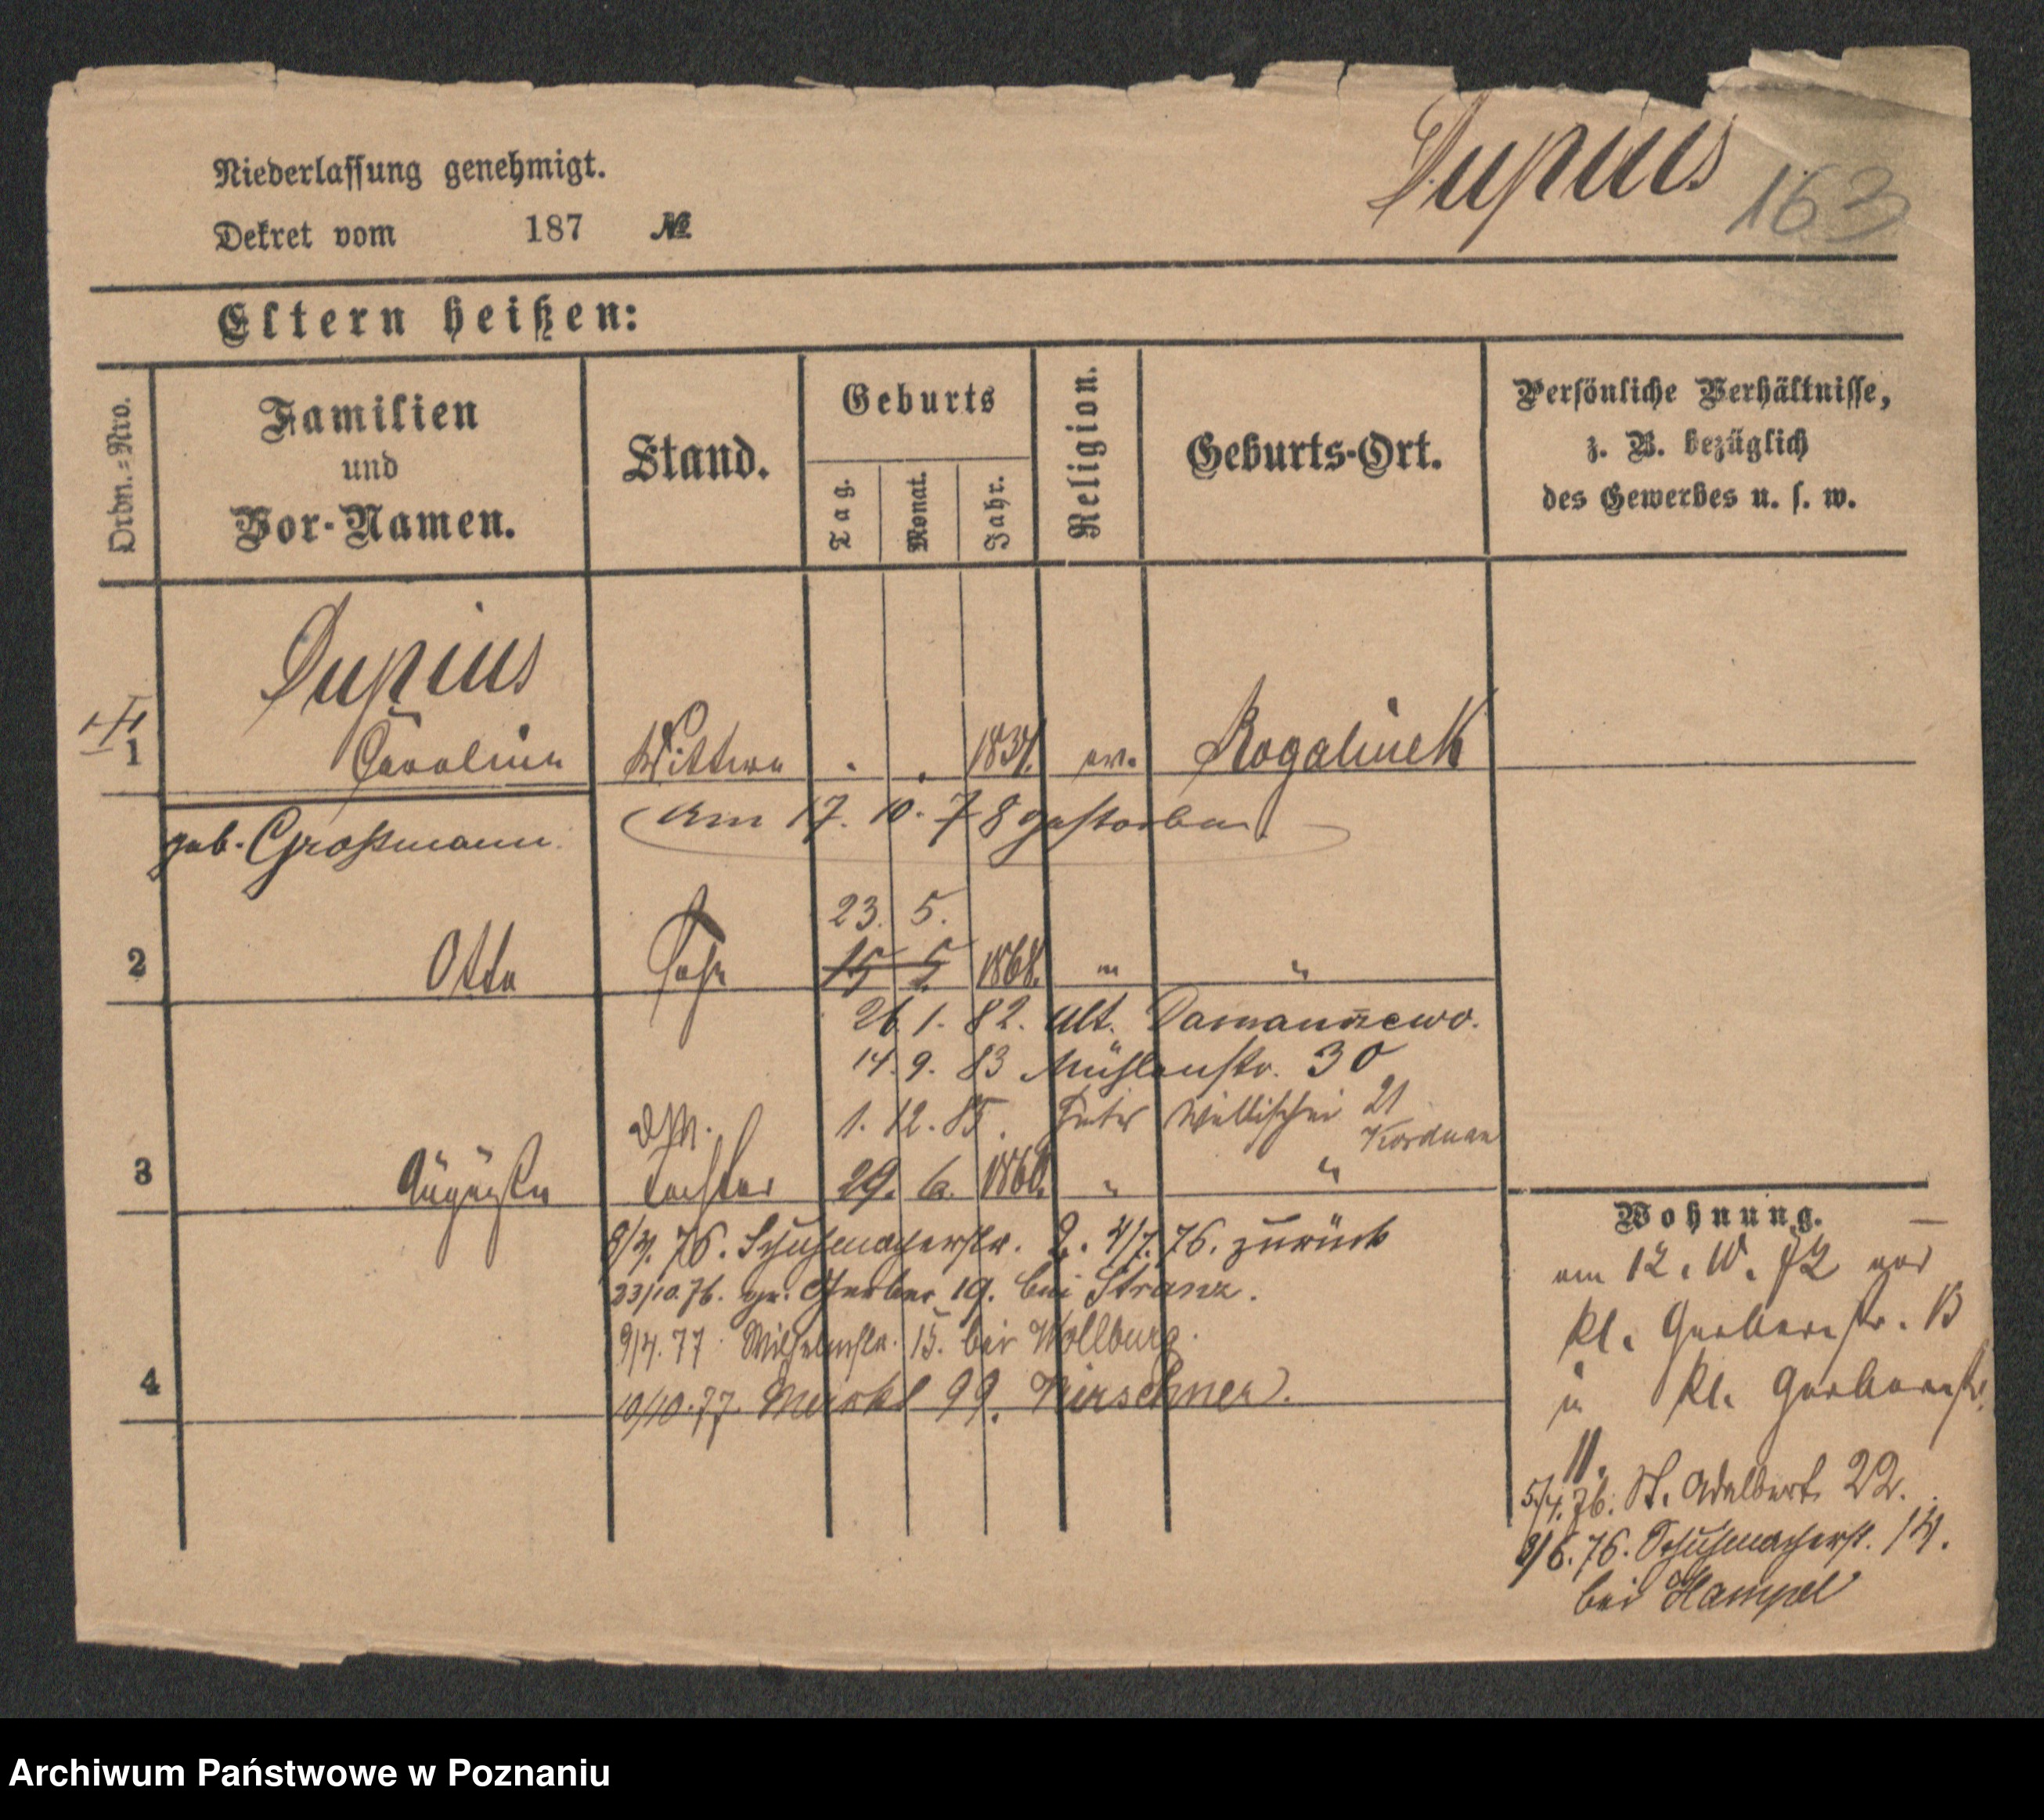 Dupius
163
Niederlassung genehmigt.
Dekret vom 187 №
Eltern heißen:
Ordn.=Nro.
Familien
und
Vor-Namen.
Stand.
Geburts
Tag.
Monat.
Jahr.
Religion.
Geburts-Ort.
Persönliche Verhältnisse,
z. B. bezüglich
des Gewerbes u. s. w.
Dupius
1 Caroline Wittwe . . ev. Rogalinek
geb. Großmann. (Am 17. 10. 78 gestorben.
23. 5.
2 Otto Sohn 15 5 1868. " "
26 1. 82. Domanzewo.
14. 9. 83 Mühlenstr. 30
1. 12. 85. Wallischei 21
3 Auguste Tochter 29. 6. " "
8/4. 76. Schuhmacherstr. 2. 4/7. 76. zurück
23/10. 76. gr. Gerber 19. bei Stranz.
9/4. 77. Wilhelmstr. 15. bei Wollburg.
4 10/10. 77. Markt 99. Kirschner).
Wohnung.
am 12. 10. 72 von
kl. Gerberstr. 13
in kl. Gerberstr.
11.
5/4. 76. St. Adalbert 22.
8/6. 76. Schuhmacherst. 14.
bei Hampel
Archiwum Państwowe w Poznaniu